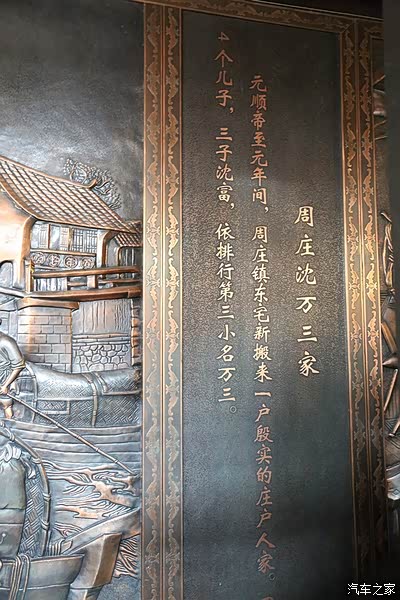 周庄沈万三家
元顺帝至元年间，周庄镇东宅新搬来一户殷实的庄户人家。
4个儿子，三子沈富，依排行第三小名万三。
汽车之家